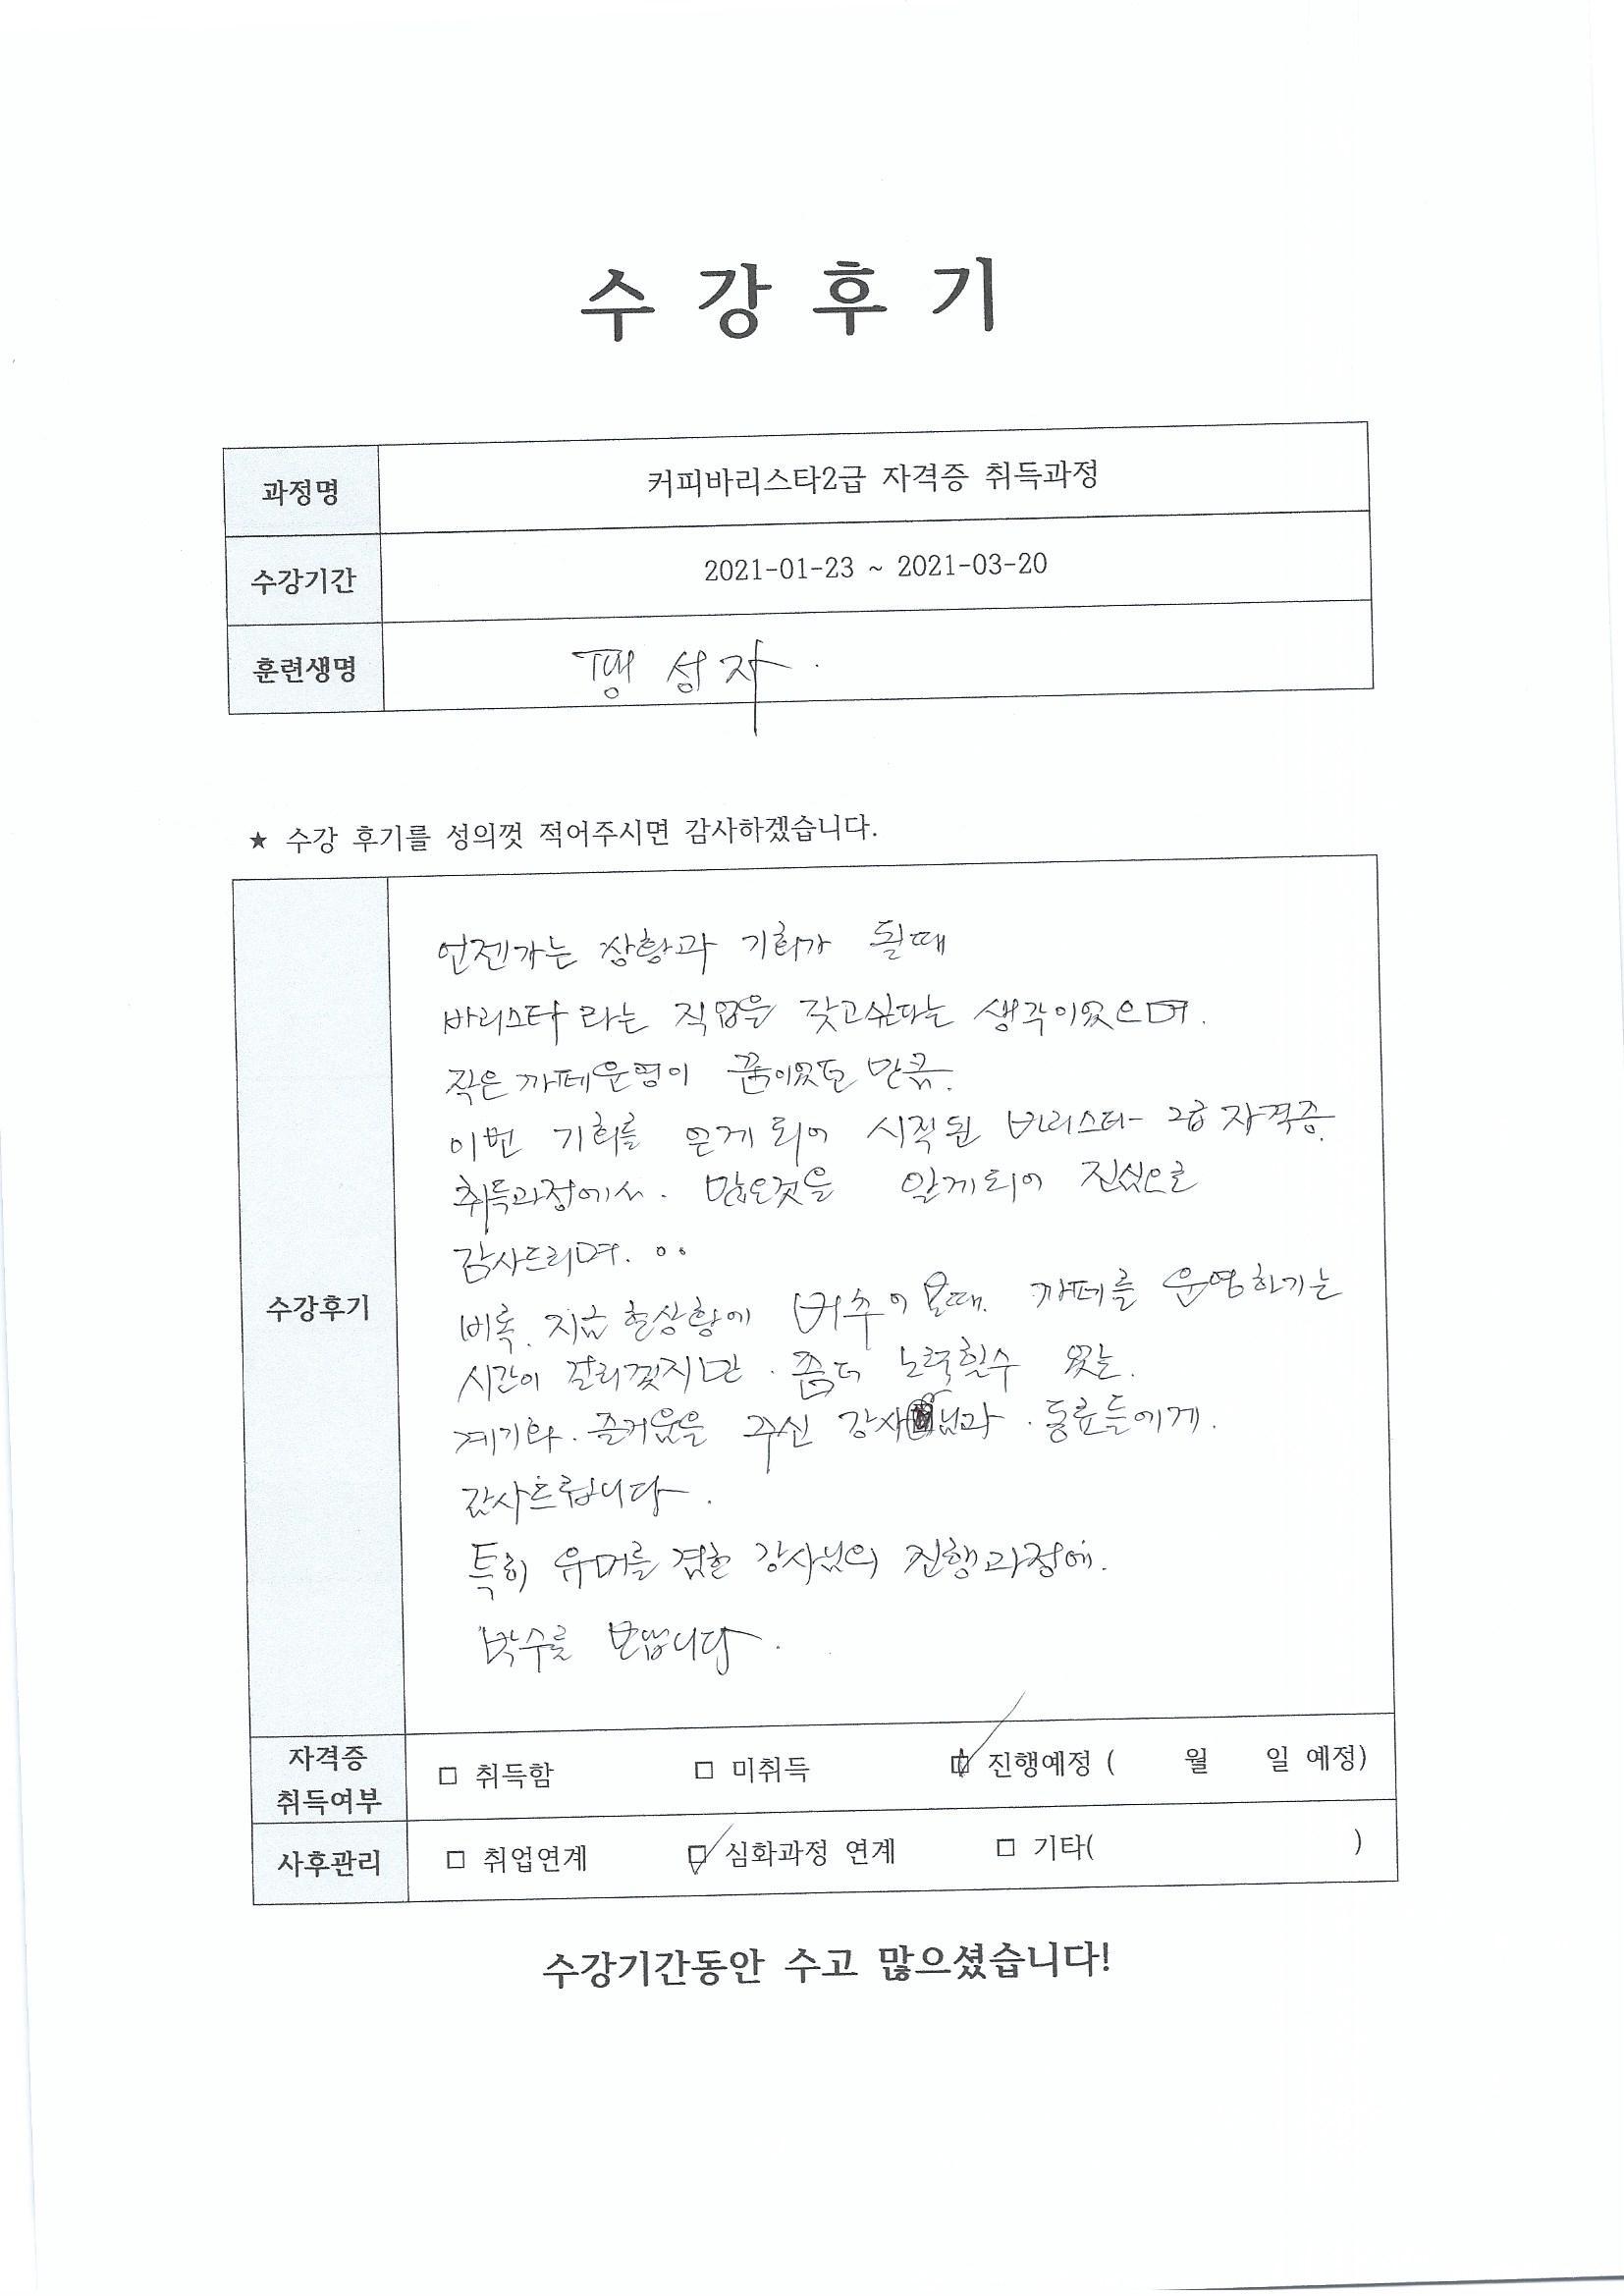 수 강 후 기
과정명 커피바리스타2급 자격증 취득과정
수강기간 2021-01-23 ~ 2021-03-20
훈련생명 팽성자.
★ 수강 후기를 성의껏 적어주시면 감사하겠습니다.
수강후기
언젠가는 상황과 기회가 될때
바리스타 라는 직업을 갖고싶다는 생각이있으며.
작은 까페운영이 꿈이있던 만큼.
이번 기회를 얻게 되어 시작된 바리스타 2급 자격증
취득과정에서. 많은것을 알게되어 진심으로
감사드리며. 。。
비록. 지금 현상황에 비추어 볼때. 까페를 운영하기는
시간이 걸리겠지만. 좀더 노력할수 있는.
계기와. 즐거움을 주신 강사님과. 동료들에게.
감사드립니다.
특히 유머를 겸한 강사님의 진행과정에.
박수를 보냅니다.
자격증
취득여부
□ 취득함 □ 미취득 ☑ 진행예정 ( 월 일 예정)
사후관리 □ 취업연계 ☑ 심화과정 연계 □ 기타( )
수강기간동안 수고 많으셨습니다!